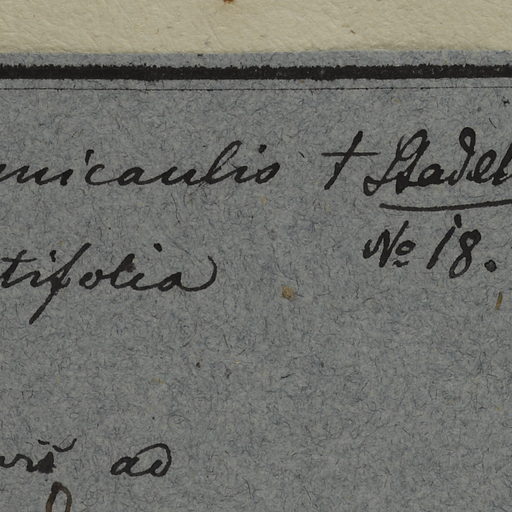 nuicaulis † Stadel
No 18.
tifolia)
ad